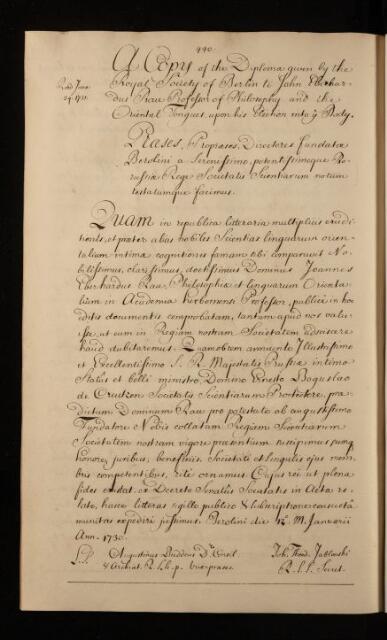 440.
A Copy of the Diploma given by the
Read June
Royal Society of Berlin to John Eberhar-
dus Rau Professor of Philosophy and the
Oriental Tongues, upon his Election into y Body.
Præses, Propræses, Directores fundatæ
Berolini a Serenissimo, potentissimoque Bo-
russiæ Rege Societatis Scientiarum notum
testatumque facimus.
Quam in republica litteraria multiplicis erudi-
tionis, et præter alias nobiles Scientias linguarum orien-
talium intima cognitionis famam tibi comparavit No-
bilissimus, clarissimus, doctissimus Dominus Joannes
Eberhardus Rau, Philosophiæ et linguarum Orienta-
lium in Academia herbornensi Professor, publice in
ditis documentis comprobatam, tantam apud nos valu-
isse, ut eum in Regiam nostram Societatem adsciscere
haud dubitaremus. Quamobrem annuente Illustrissimo
et Excellentissimo S. R. Majestatis Prussiæ intimo
Status et belli ministro, Domino Ernesto Boguslao
de Creutzen Societatis Scientiarum Protectore, præ-
dictum Dominum Rau pro potestate ab augustissimo
Fundatore Nobis collatam Regiam Scientiarum
Societatem nostram vigore præsentium recipimus
honore, juribus, beneficiis, Societati et singulis ejus mem-
bris competentibus, rite ornamus. Cujus rei ut plena
fides extet, ex Decreto Senatus Societatis in Acta re-
lato, hasce litteras sigillo publico & subscriptione consueta
munitas expediri jussimus. Berolini die 12. M. Januarii
Ann. 1730.
L.S. Augustinus Buddeus D. Consil.
Joh. Theod. Jablonski
& Archiat. R. h. p. Vice-præses.
R. S. S. Secret.